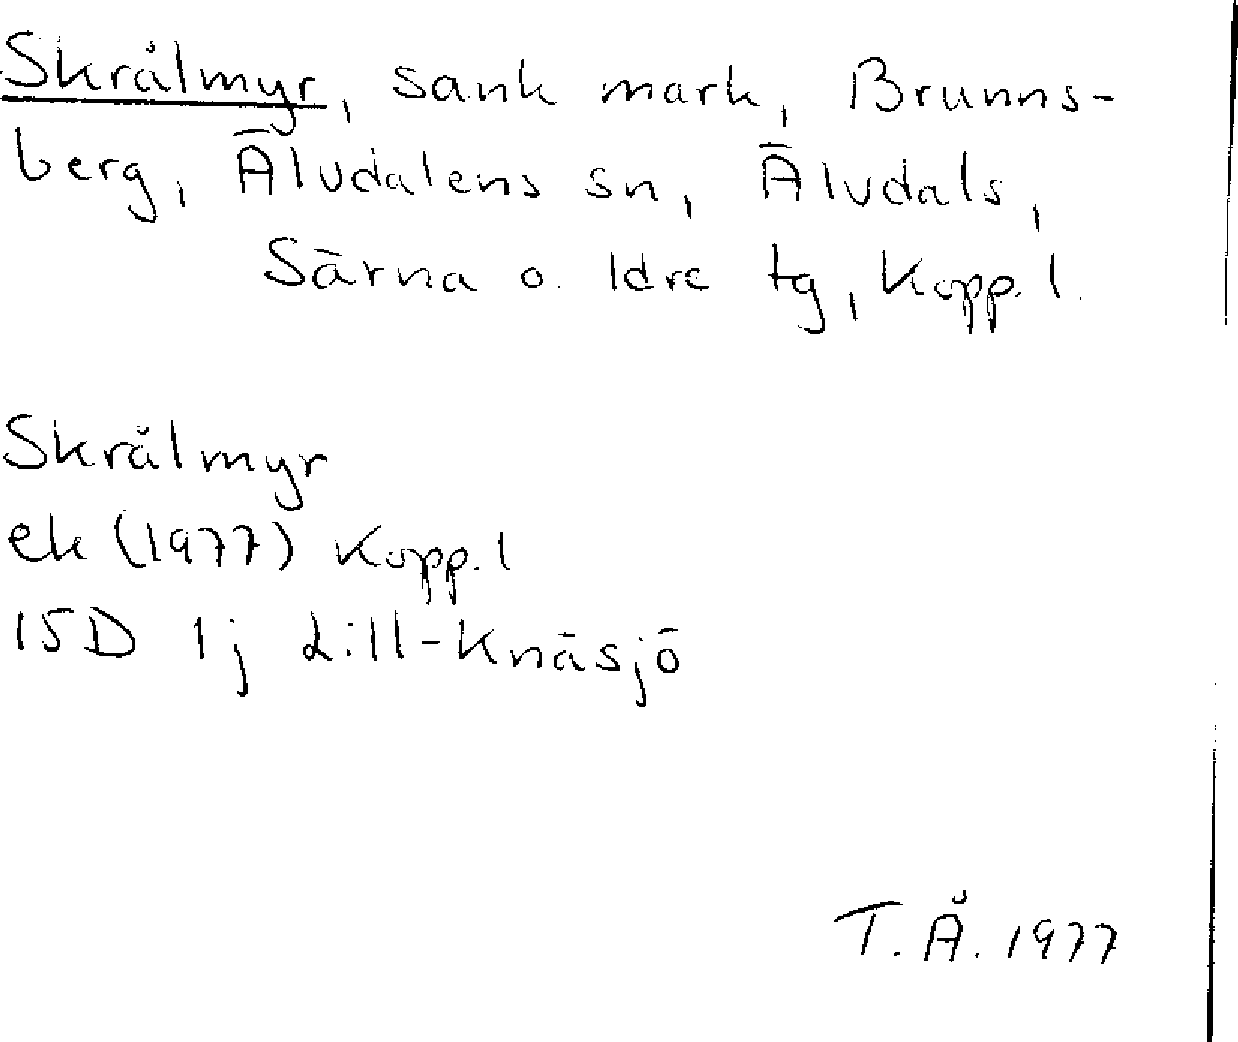 Skrålmyr, sank mark, Brunns-
berg, Älvdalens sn, Älvdals,
Särna o. Idre tg, Kopp. l.
Skrålmyr
ek (1977) Kopp. l
15D 1j Lill-Knäsjö
T. Å. 1977